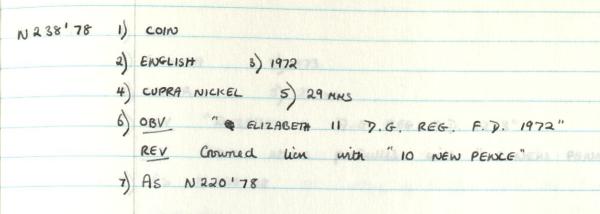 N238'78 1) COIN
2) ENGLISH 3) 1972
4) CUPRA NICKEL 5) 29 MMS
6) OBV " ELIZABETH II D.G. REG. F.D. 1972"
REV Crowned lion with "10 NEW PENCE"
7) AS N220'78